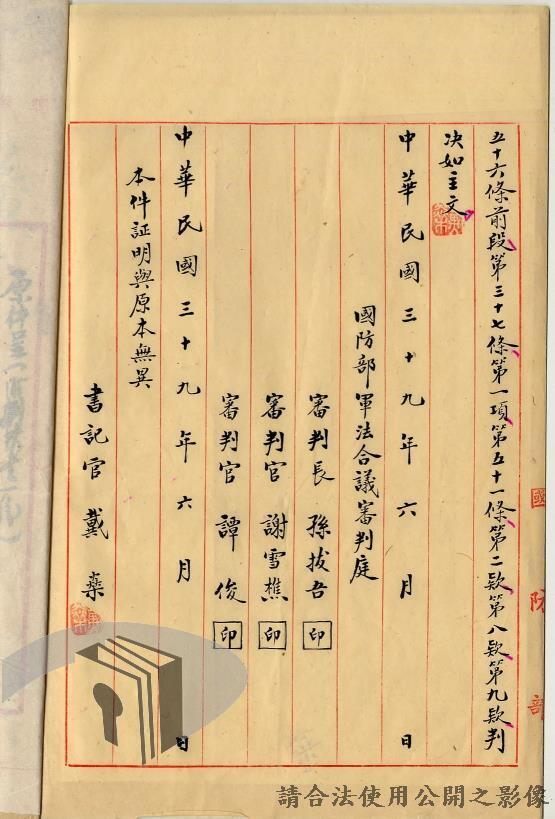 五十六條前段第三十七條第一項第五十一條第二款第八款第九款判
決如主文
中華民國三十九年六月 日
國防部軍法合議審判庭
審判長 孫拔吾 印
審判官 謝雪樵 印
審判官 譚俊 印
中華民國三十九年六月 日
本件証明與原本無異
書記官 戴
國防部
請合法使用公開之影像